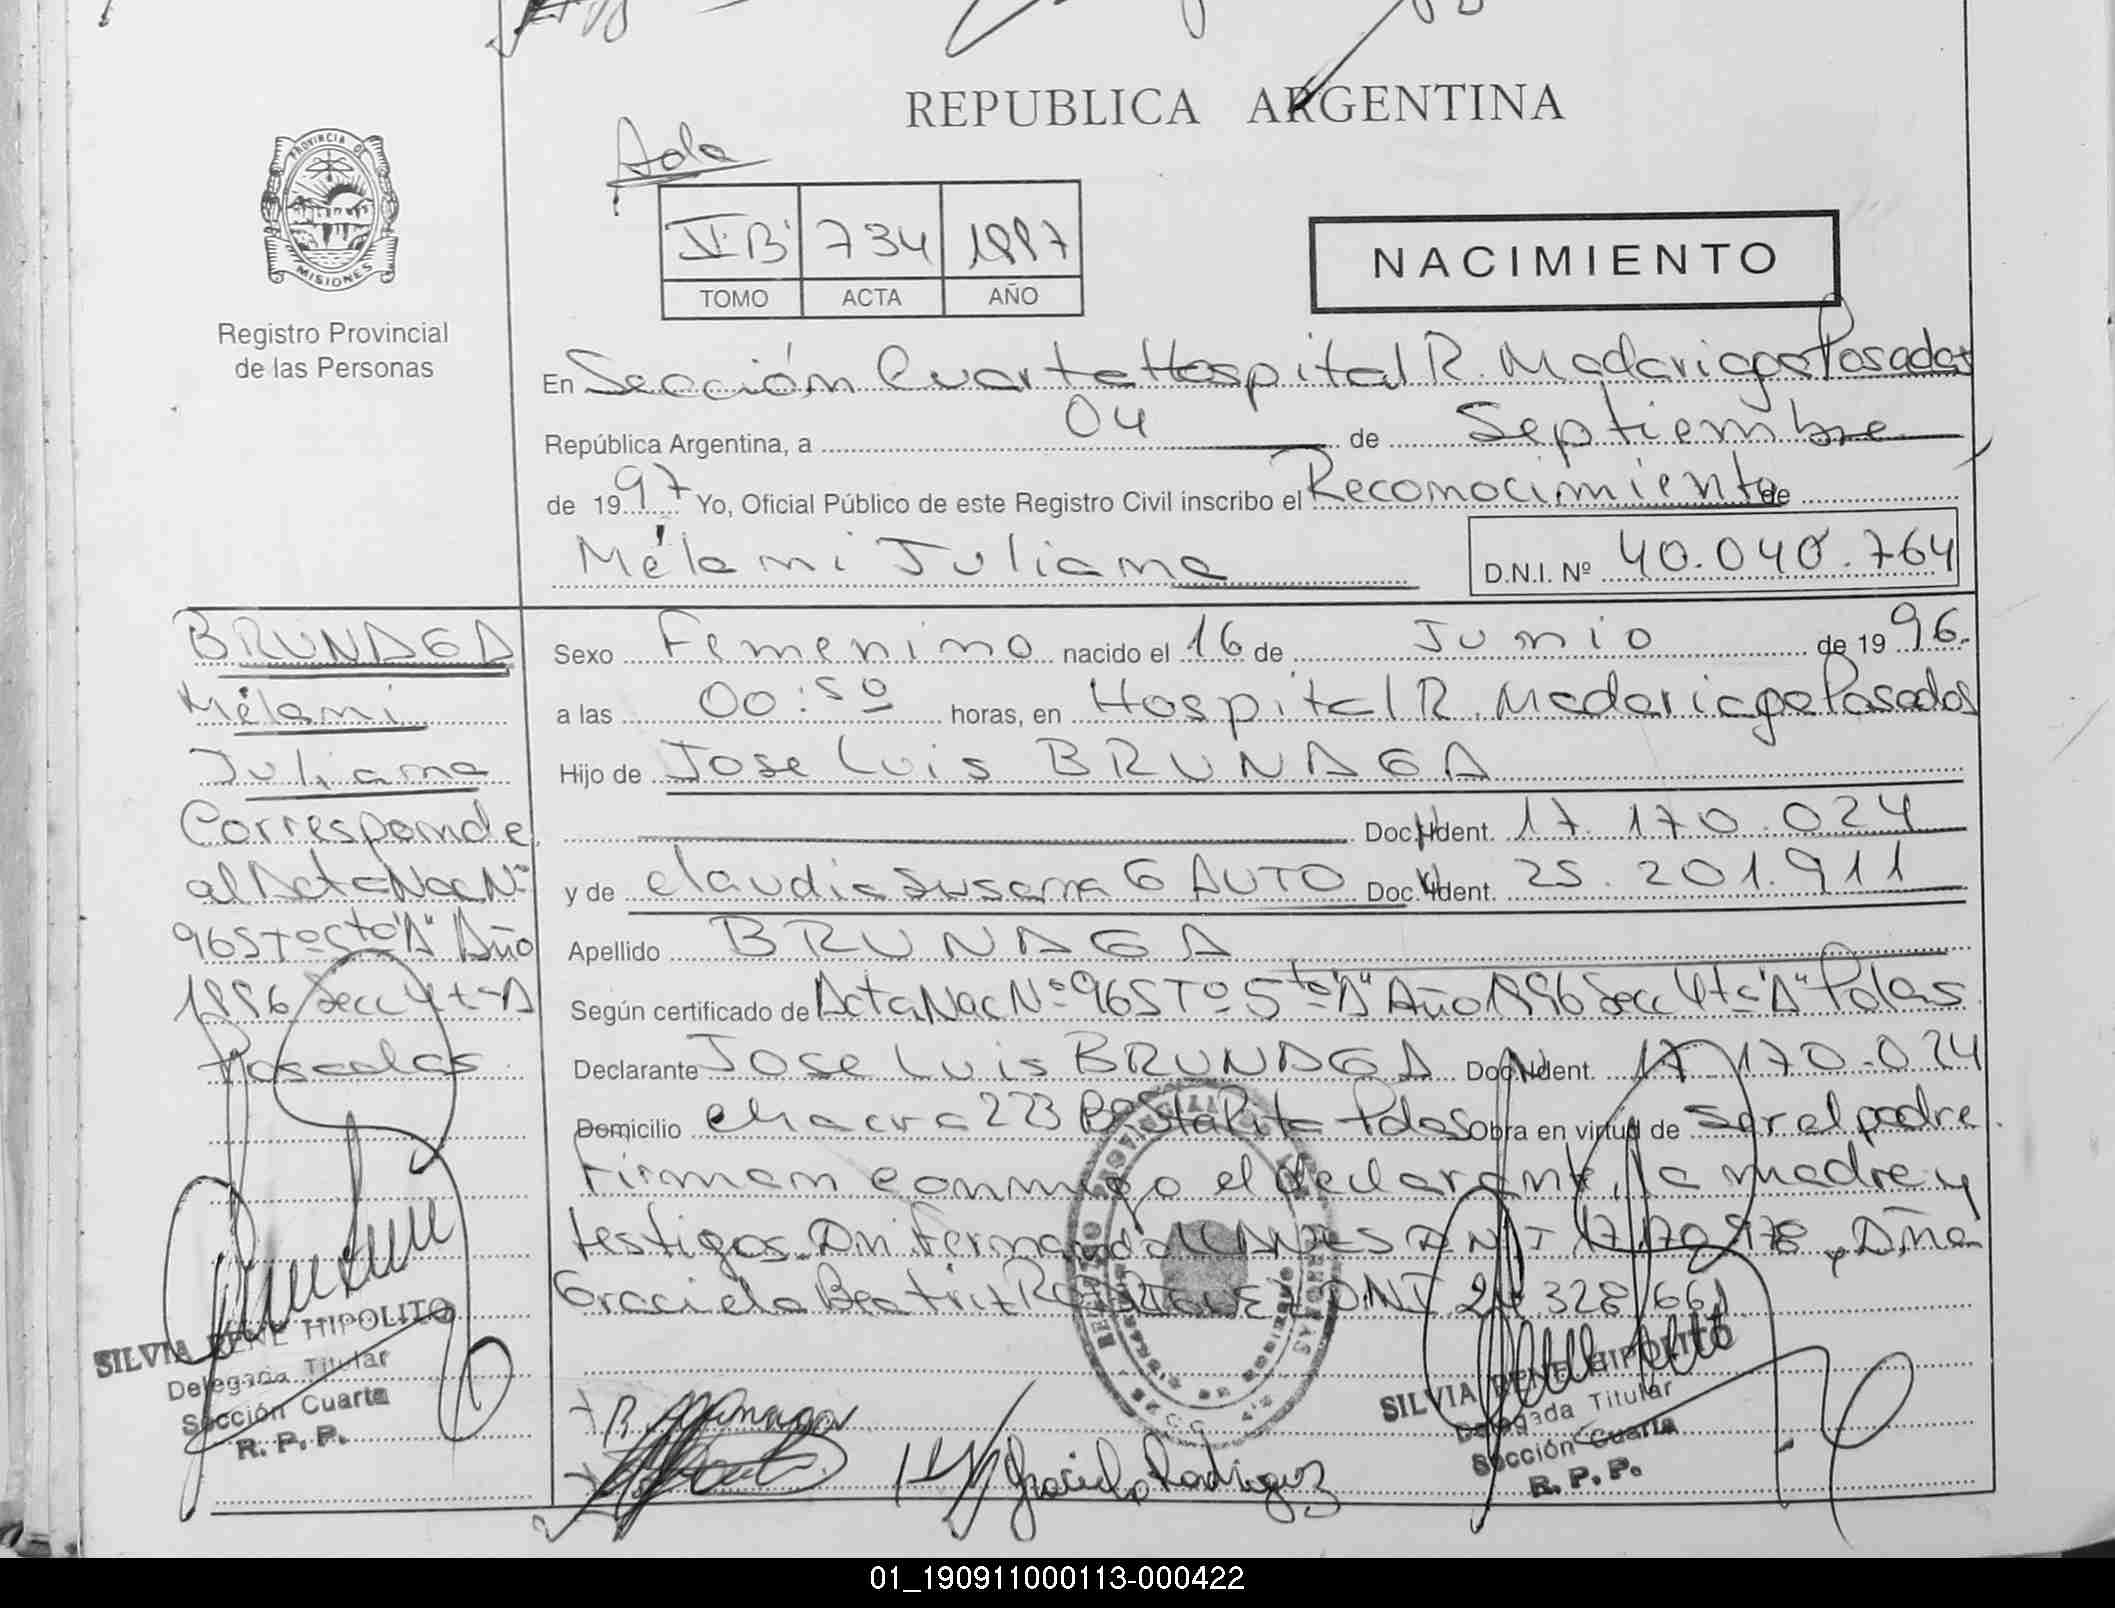 REPUBLICA ARGENTINA
PROVINCIA DE
MISIONES
Registro Provincial
de las Personas
Ada
V "B" 734 1997
TOMO ACTA AÑO
NACIMIENTO
En Sección Cuarta Hospital R. Madariaga Posadas
República Argentina, a 04 de Septiembre
de 1997 Yo, Oficial Público de este Registro Civil inscribo el Reconocimiento de
Mélani Juliana
D.N.I. Nº 40.040.764
BRUNAGA
Mélani
Juliana
Corresponde
al Acta Nac Nº
965 Tº 5to "A" Año
1996 Secc 4ta A
Posadas
Sexo Femenino nacido el 16 de Junio de 1996.
a las 00:50 horas, en Hospital R. Madariaga Posadas
Hijo de Jose Luis BRUNAGA
Doc. Ident. 17.170.024
y de Claudia Susana GAUTO Doc. Ident. 25.201.911
Apellido BRUNAGA
Según certificado de Acta Nac Nº 965 Tº 5to "A" Año 1996 Secc 4ta "A" Pdas.
Declarante Jose Luis BRUNAGA Doc. Ident. 17.170.024
Domicilio Chacra 223 Bº Sta Rita Pdas Obra en virtud de ser el padre.
Firman conmigo el declarante, la madre y
testigos Dn. Fernando DNI 17.170.978 y Dña
Graciela Beatriz RODRIGUEZ DNI 24.328.661
SILVIA RENE HIPOLITO
Delegada Titular
Sección Cuarta
R. P. P.
SILVIA RENE HIPOLITO
Delegada Titular
Sección Cuarta
R. P. P.
Graciela Rodriguez
01_190911000113-000422